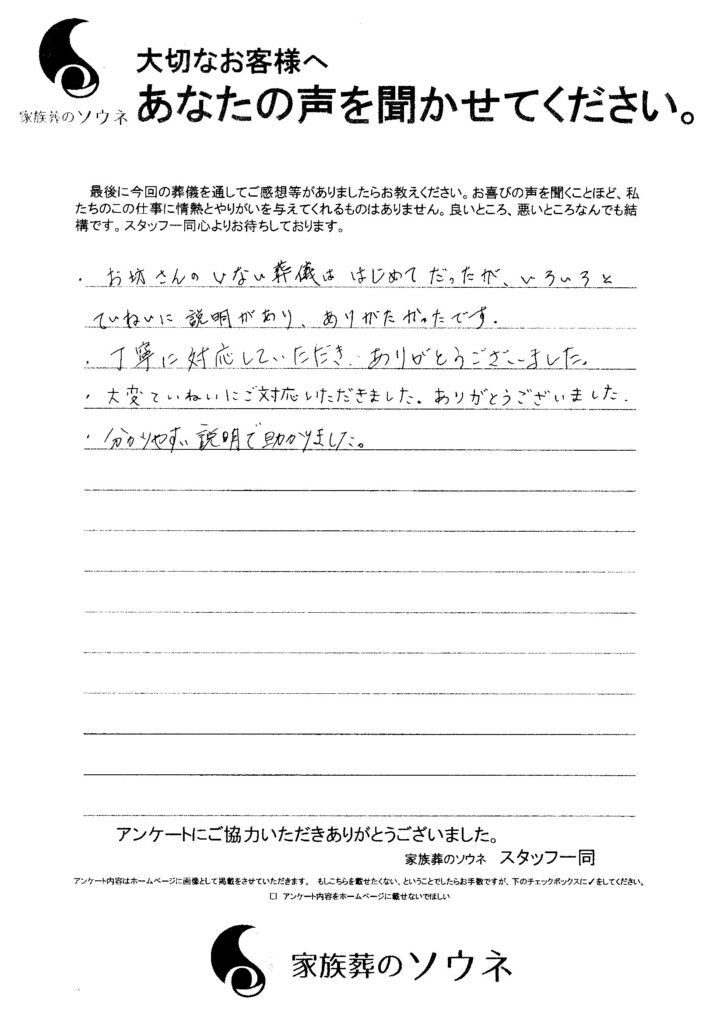 大切なお客様へ
家族葬のソウネ
あなたの声を聞かせてください。
最後に今回の葬儀を通してご感想等がありましたらお教えください。お喜びの声を聞くことほど、私
たちのこの仕事に情熱とやりがいを与えてくれるものはありません。良いところ、悪いところなんでも結
構です。スタッフ一同心よりお待ちしております。
・お坊さんのいない葬儀ははじめてだったが、いろいろと
ていねいに説明があり、ありがたかったです.
・丁寧に対応していただき、ありがとうございました。
・大変ていねいにご対応いただきました。ありがとうございました.
・分かりやすい説明で助かりました。
アンケートにご協力いただきありがとうございました。
家族葬のソウネ スタッフ一同
アンケート内容はホームページに画像として掲載をさせていただきます。 もしこちらを載せたくない、ということでしたらお手数ですが、下のチェックボックスに✓をしてください。
□ アンケート内容をホームページに載せないでほしい
家族葬のソウネ